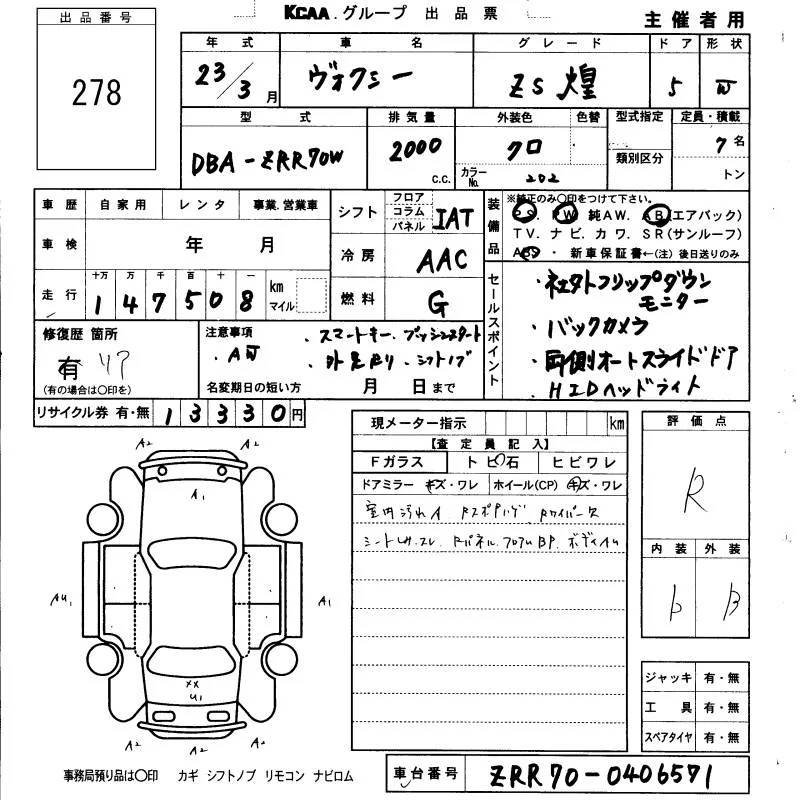 KCAA.グループ 出品票
主催者用
出品番号
278
年式 車名 グレード ドア 形状
23/3月 ヴォクシー ZS 煌 5 W
型式 排気量 外装色 色替 型式指定 定員・積載
DBA-ZRR70W 2000 c.c. クロ 類別区分 7名
カラーNo. 202 トン
車歴 自家用 レンタ 事業.営業車
車検 年 月
走行 十万 万 千 百 十 一
147508 km マイル
シフト フロア コラム パネル IAT
冷房 AAC
燃料 G
装備品
※純正のみ〇印をつけて下さい。
P.S. PW 純AW. AB(エアバック)
TV.ナビ.カワ.SR(サンルーフ)
ABS・新車保証書←(注)後日送りのみ
セールスポイント
・社外フリップダウンモニター
・バックカメラ
・両側オートスライドドア
・HIDヘッドライト
修復歴 箇所
有 リア
(有の場合は〇印を)
注意事項 ・スマートキー・プッシュスタート
・AW
名変期日の短い方 月 日まで
リサイクル券 有・無 13330円
現メーター指示 km
【査定員記入】
Fガラス トビ石 ヒビワレ
ドアミラー キズ・ワレ ホイール(CP) キズ・ワレ
室内汚れA
評価点
R
内装 外装
D B
A2 A2
A1
AU1 A1
XX
U1
A2 A2 A2
ジャッキ 有・無
工具 有・無
スペアタイヤ 有・無
事務局預り品は〇印 カギ シフトノブ リモコン ナビロム
車台番号 ZRR70-0406571